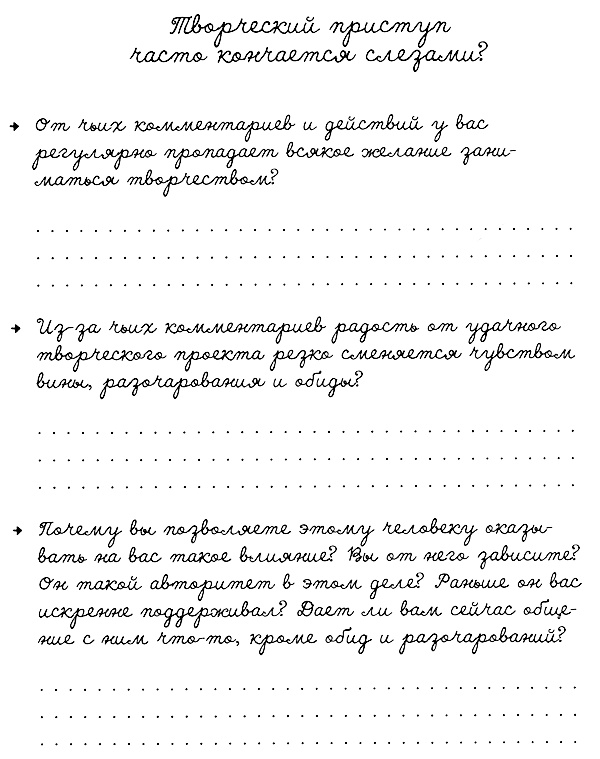 Творческий приступ
часто кончается слезами?
→ От чьих комментариев и действий у вас
регулярно пропадает всякое желание зани-
маться творчеством?
→ Из-за чьих комментариев радость от удачного
творческого проекта резко сменяется чувством
вины, разочарования и обиды?
→ Почему вы позволяете этому человеку оказы-
вать на вас такое влияние? Вы от него зависите?
Он такой авторитет в этом деле? Раньше он вас
искренне поддерживал? Дает ли вам сейчас обще-
ние с ним что-то, кроме обид и разочарований?